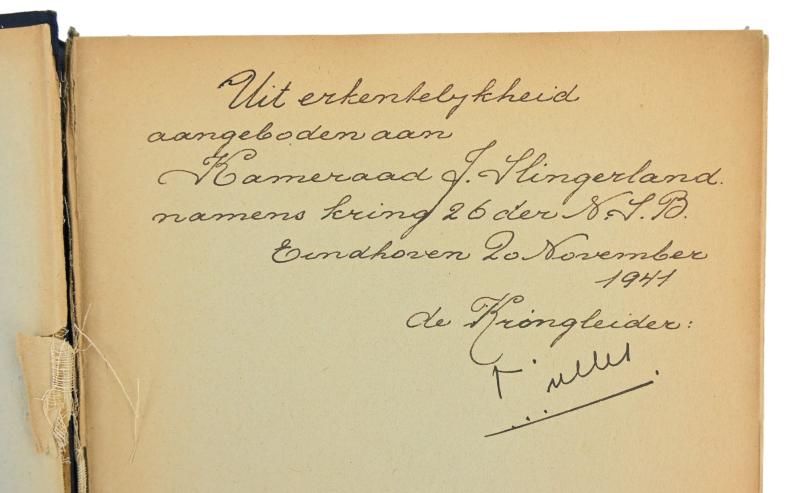 Uit erkentelijkheid
aangeboden aan
Kameraad J. Slingerland.
namens kring 26 der N.S.B.
Eindhoven 20 November
1941
de Kringleider: